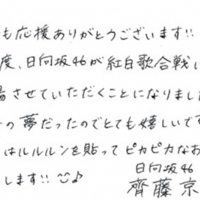 も応援ありがとうございます!!
度、日向坂46が紅白歌合戦に
場させていただくことになりました
の夢だったのでとても嬉しいです
はルルルンを貼ってピカピカなお
します!!
日向坂46
齊藤京